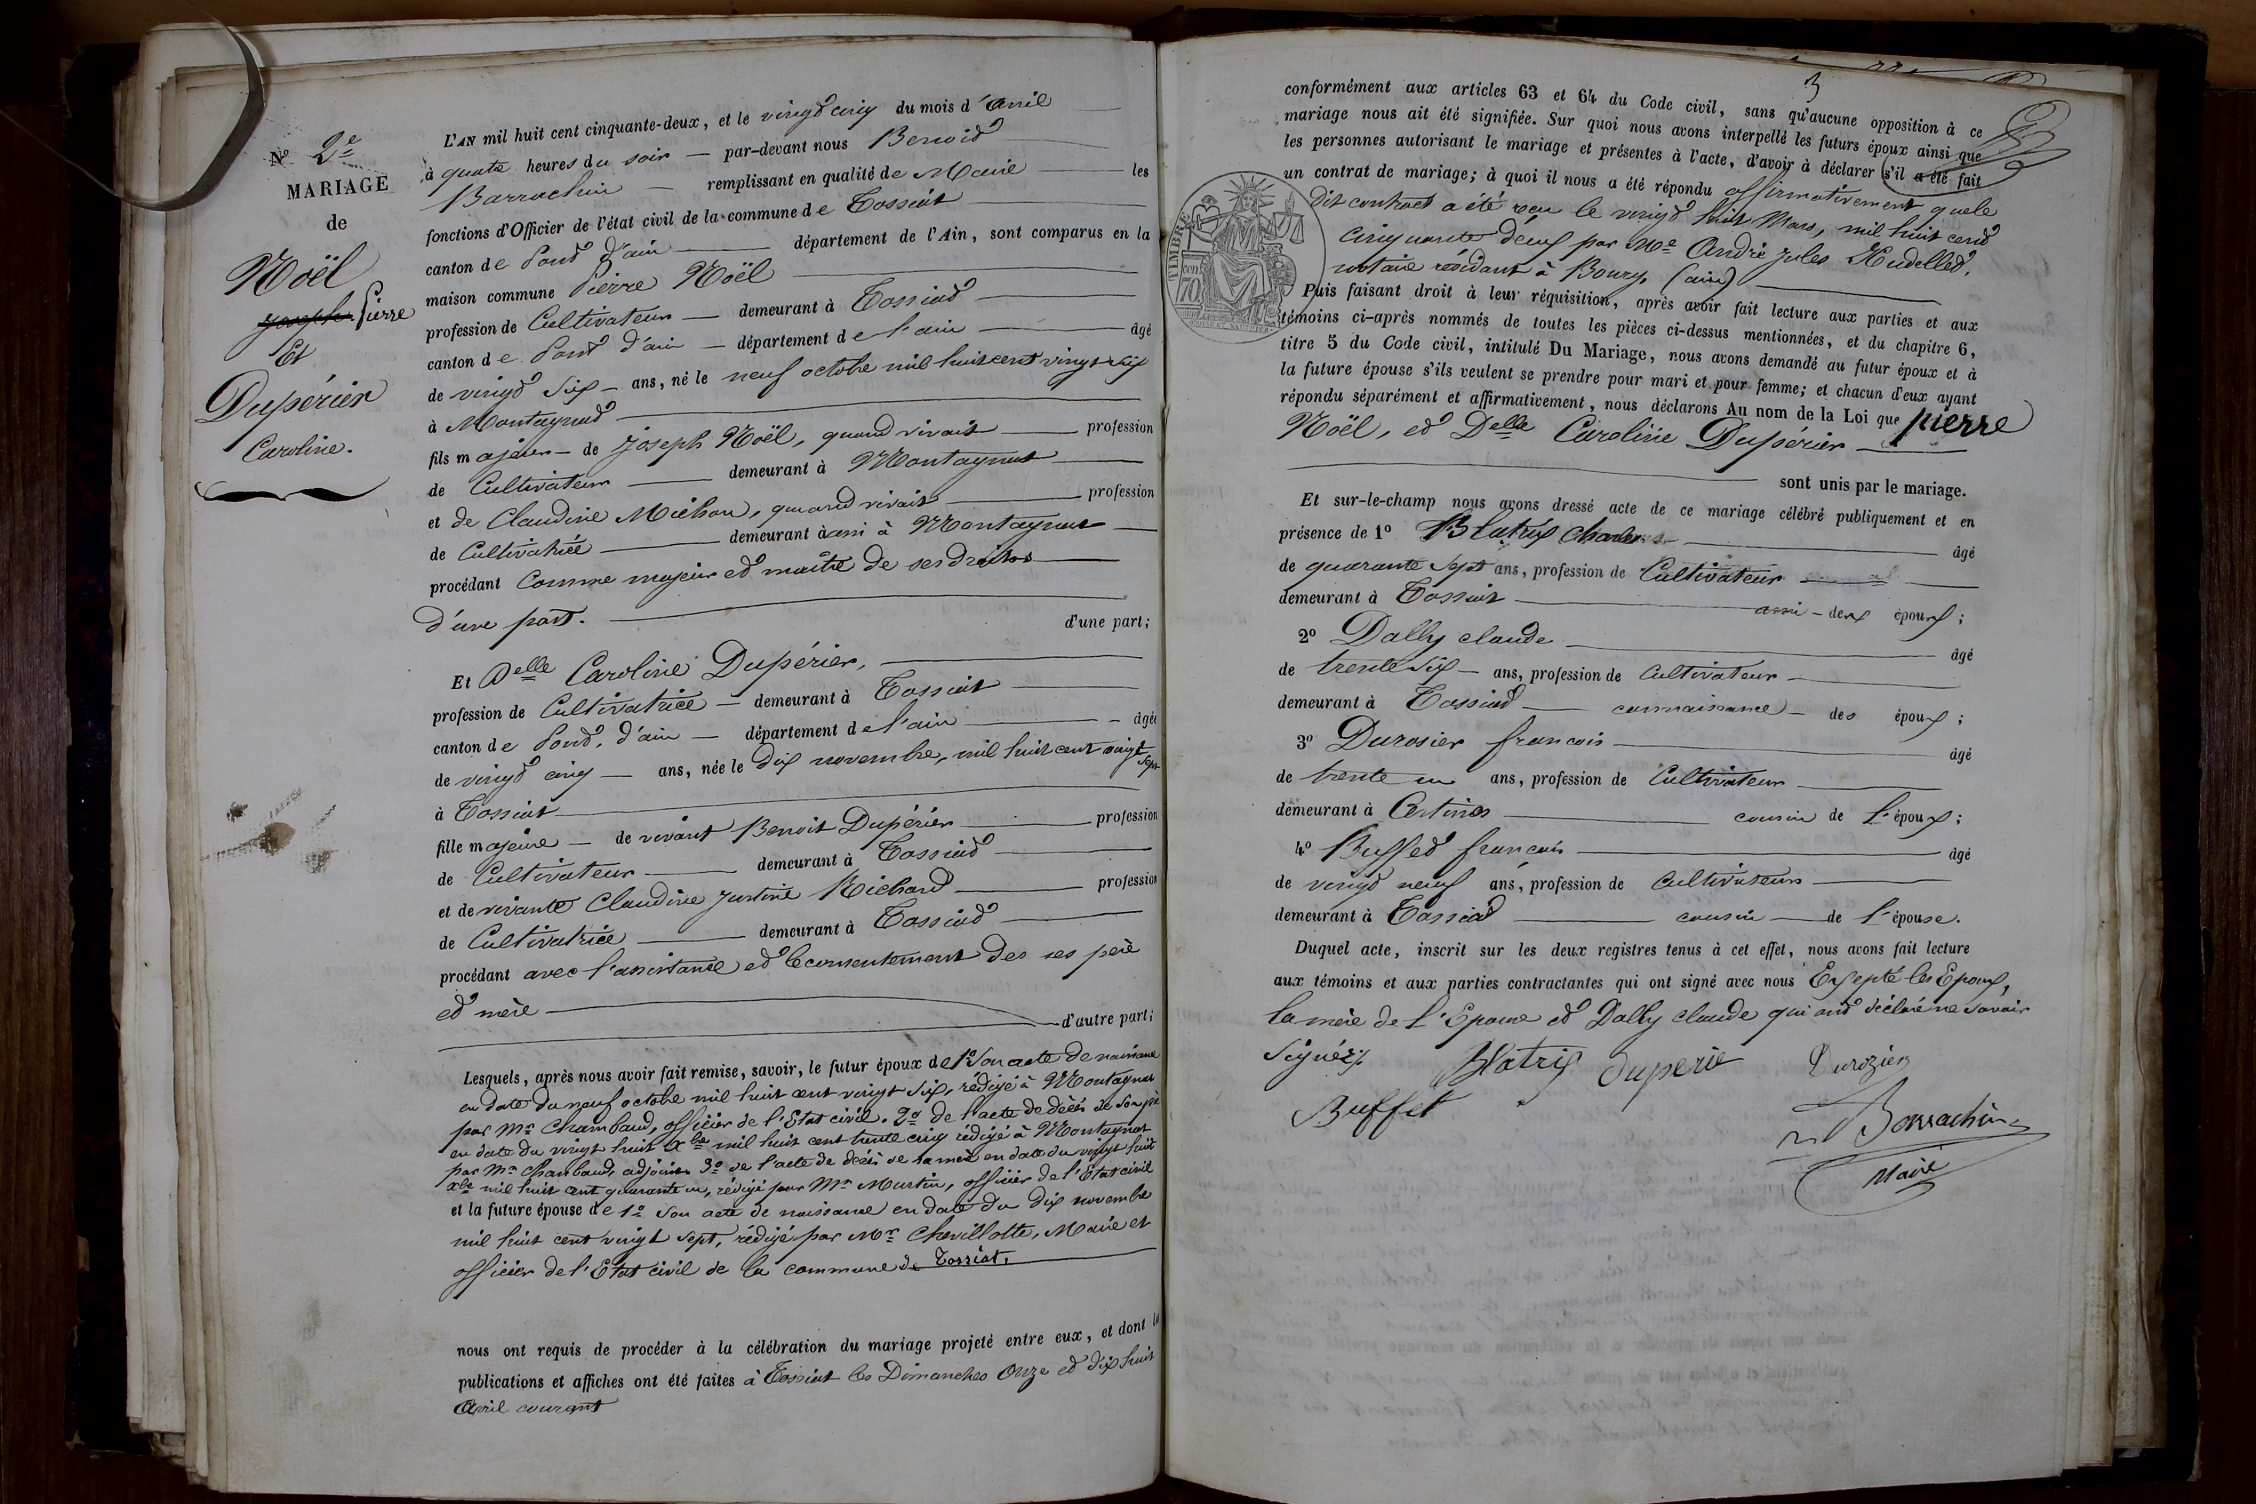 N° 2e
MARIAGE
de
Noël
Joseph Pierre
Et
Dupérier
Caroline.
L'AN mil huit cent cinquante-deux, et le vingt cinq du mois d'Avril
à quatre heures du soir — par-devant nous Benoit
Barrachin — remplissant en qualité de Maire — les
fonctions d'Officier de l'état civil de la commune de Tossiat
canton de Pont d'ain — département de l'Ain, sont comparus en la
maison commune Pierre Noël
profession de Cultivateur — demeurant à Tossiat
canton de Pont d'ain — département de l'ain — âgé
de vingt six — ans, né le neuf octobre mil huit cent vingt six
à Montagnat
fils majeur — de Joseph Noël, quand vivait — profession
de Cultivateur — demeurant à Montagnat
et de Claudine Michon, quand vivait — profession
de Cultivatrice — demeurant à aussi à Montagnat
procédant Comme majeur et maître de ses droits
d'une part. — d'une part;
Et Delle Caroline Dupérier,
profession de Cultivatrice — demeurant à Tossiat
canton de Pont d'ain — département de l'ain — âgée
de vingt cinq — ans, née le dix novembre, mil huit cent vingt sept
à Tossiat
fille majeure — de vivant Benoit Dupérier — profession
de Cultivateur — demeurant à Tossiat
et de vivante Claudine Justine Richard — profession
de Cultivatrice — demeurant à Tossiat
procédant avec l'assistance et le consentement des ses père
et mère
d'autre part;
Lesquels, après nous avoir fait remise, savoir, le futur époux de 1° Son acte de naissance
en date du neuf octobre mil huit cent vingt six, rédigé à Montagnat
par Mr Chambaud, officier de l'Etat civil. 2° de l'acte de décès de son père
en date du vingt huit Xbre mil huit cent trente cinq rédigé à Montagnat
par Mr Chambaud, adjoint 3° de l'acte de décès de sa mère en date du vingt huit
Xbre mil huit cent quarante un, rédigé par Mr Martin, officier de l'Etat civil
et la future épouse de 1° Son acte de naissance en date du dix novembre
mil huit cent vingt sept, rédigé par Mr Chevillotte, Maire et
officier de l'Etat civil de la commune de Tossiat.
nous ont requis de procéder à la célébration du mariage projeté entre eux, et dont les
publications et affiches ont été faites à Tossiat les Dimanches Onze et dix huit
Avril courant
3
conformément aux articles 63 et 64 du Code civil, sans qu'aucune opposition à ce
mariage nous ait été signifiée. Sur quoi nous avons interpellé les futurs époux ainsi que
les personnes autorisant le mariage et présentes à l'acte, d'avoir à déclarer s'il a été fait
un contrat de mariage; à quoi il nous a été répondu affirmativement que le
dit contrat a été reçu le vingt huit Mars, mil huit cent
cinquante deux par Me André Jules Hudellet,
notaire résidant à Bourg, (ain)
TIMBRE
70
Puis faisant droit à leur réquisition, après avoir fait lecture aux parties et aux
témoins ci-après nommés de toutes les pièces ci-dessus mentionnées, et du chapitre 6,
titre 5 du Code civil, intitulé Du Mariage, nous avons demandé au futur époux et à
la future épouse s'ils veulent se prendre pour mari et pour femme; et chacun d'eux ayant
répondu séparément et affirmativement, nous déclarons Au nom de la Loi que pierre
Noël, et Delle Caroline Dupérier
sont unis par le mariage.
Et sur-le-champ nous avons dressé acte de ce mariage célébré publiquement et en
présence de 1° Blatrix Charles — âgé
de quarante Sept ans, profession de Cultivateur
demeurant à Tossiat — ami — des époux;
2° Dally claude — âgé
de trente six — ans, profession de Cultivateur
demeurant à Tossiat — connaissance — des époux;
3° Durosier francois — âgé
de trente un ans, profession de Cultivateur
demeurant à Certines — cousin de l'époux;
4° Buffet francois — âgé
de vingt neuf ans, profession de Cultivateur
demeurant à Tossiat — cousin — de l'épouse.
Duquel acte, inscrit sur les deux registres tenus à cet effet, nous avons fait lecture
aux témoins et aux parties contractantes qui ont signé avec nous Exsepté les Epoux,
la mère de l'Epouse et Dally claude qui ont déclaré ne savoir
Signé
Blatrix Duperie Durozier
Buffet
Barrachin
Maire